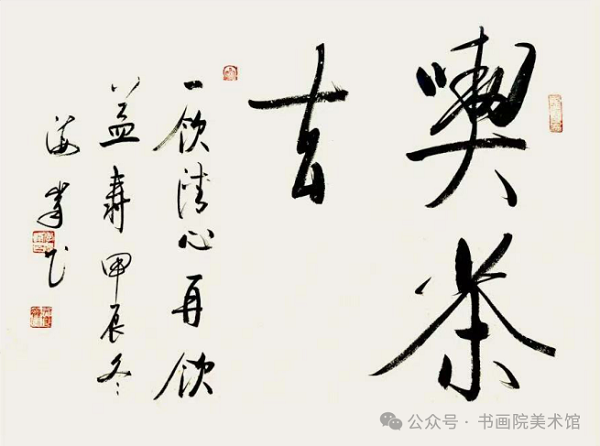 喫茶
去
一饮清心再饮
益寿甲辰冬
海峯书
公众号 · 书画院美术馆